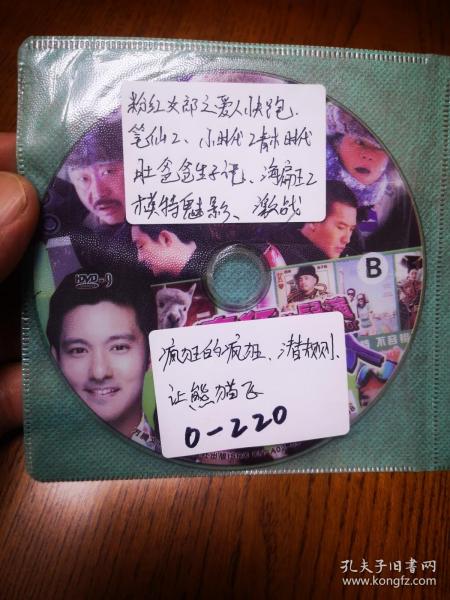 粉红女郎之爱人快跑、
笔仙2、小时代2青木时代
肚爸爸生子记、海扁王2
模特魅影、激战
DVD-9
B
不容错
疯狂的疯狂、潜规则、
让熊猫飞
0-220
孔夫子旧书网
www.kongfz.com